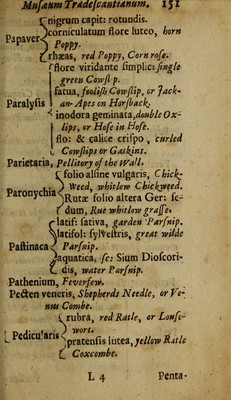 Musæum Tradescantianum. 151
nigrum capit: rotundis.
Papaver corniculatum flore luteo, horn
Poppy.
rhæas, red Poppy, Corn rose.
flore viridante simplici single
green Cowsl p.
fatua, foolish Cowslip, or Jack-
Paralysis an-Apes on Horsback.
inodora geminata, double Ox-
lips, or Hose in Hose.
flo: & calice crispo, curled
Cowslips or Gaskins.
Parietaria, Pellitory of the Wall.
folio alsine vulgaris, Chick-
Paronychia Weed, whitlow Chickweed.
Rutæ folio altera Ger: se-
dum, Rue whitlow grasse.
latif: sativa, garden Parsnip.
latifol: sylvestris, great wilde
Pastinaca Parsnip.
aquatica, sc: Sium Dioscori-
dis, water Parsnip.
Pathenium, Feversew.
Pecten veneris, Shepherds Needle, or Ve-
nus Combe.
rubra, red Ratle, or Louse-
Pedicularis wort.
pratensis lutea, yellow Ratle
Coxcombe.
L 4 Penta-